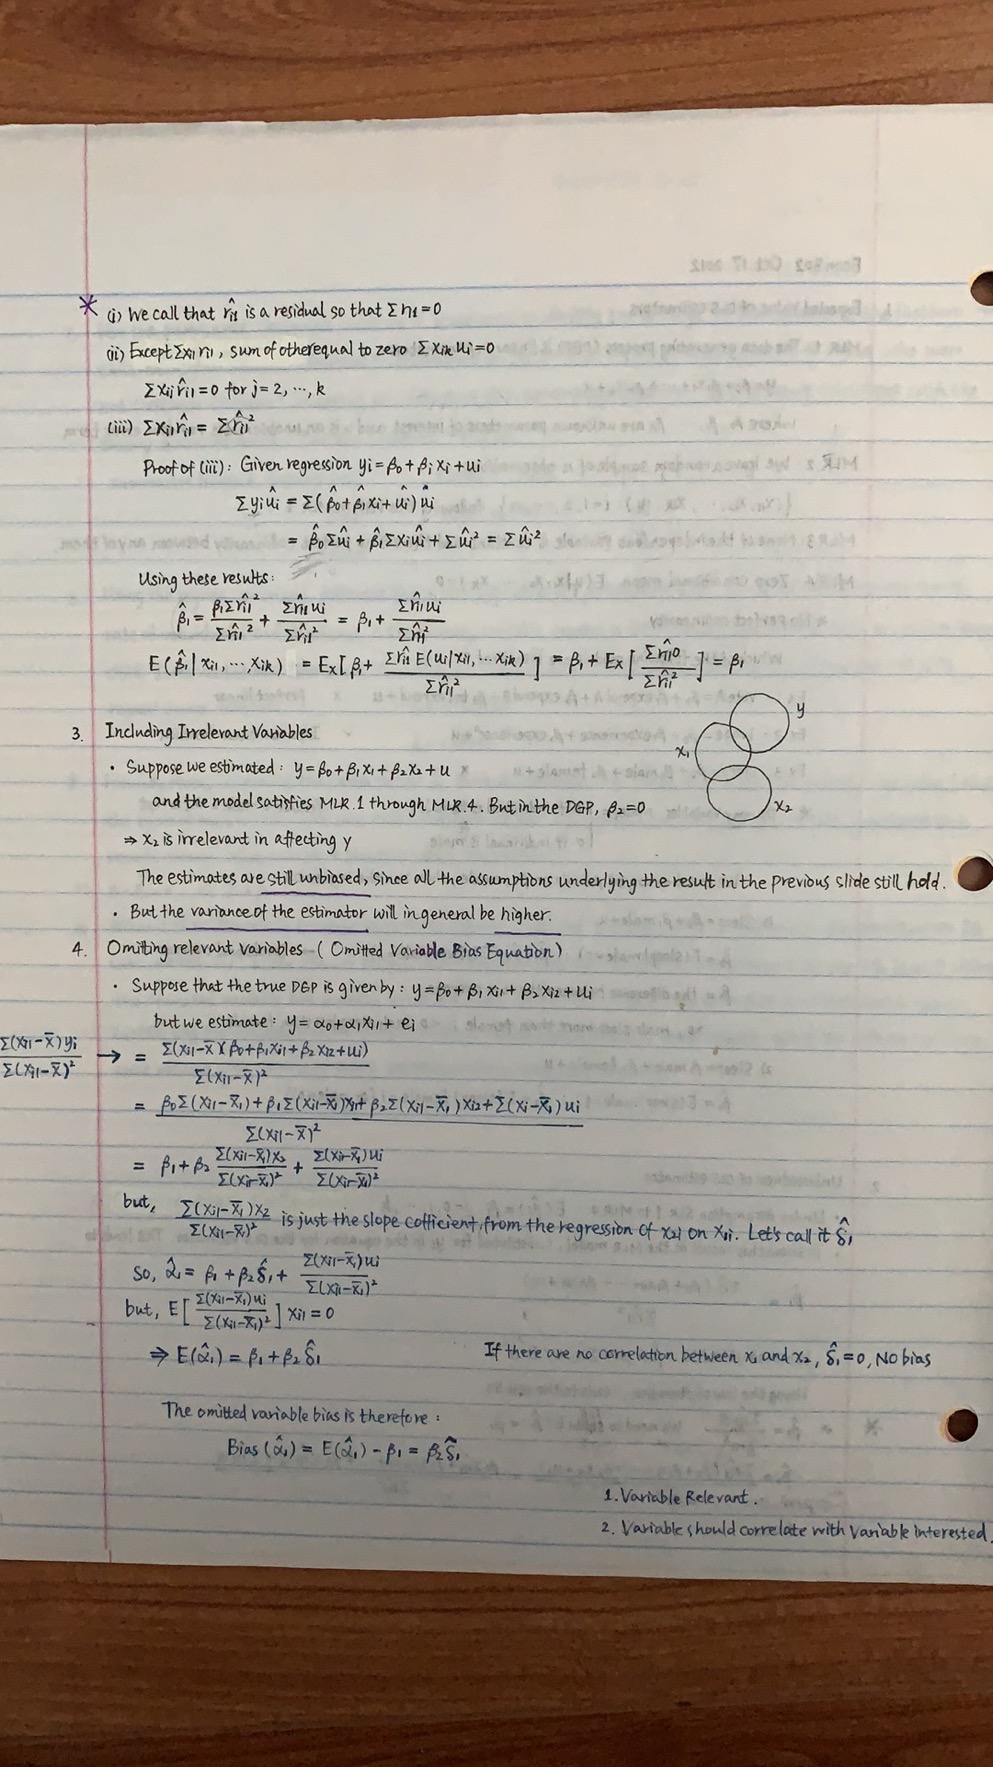 * (i) We call that r̂i1 is a residual so that Σ ri1 = 0
(ii) Except Σxi1 ri1, sum of other equal to zero Σ xik ui = 0
Σxij r̂i1 = 0 for j = 2, ..., k
(iii) Σxi1 r̂i1 = Σr̂i1²
Proof of (iii): Given regression yi = β0 + β1 xi + ui
Σ yi ûi = Σ(β̂0 + β̂1xi + ûi) ûi
= β̂0 Σûi + β̂1 Σxiûi + Σûi² = Σûi²
Using these results:
β̂1 = β1Σr̂i1² / Σr̂i1² + Σr̂i1 ui / Σr̂i1² = β1 + Σr̂i1 ui / Σr̂i1²
E(β̂1 | xi1, ..., xik) = Ex[β1 + Σr̂i1 E(ui|xi1, ... xik) / Σr̂i1²] = β1 + Ex[Σr̂i1 0 / Σr̂i1²] = β1
3. Including Irrelevant Variables
y
x1
x2
· Suppose we estimated: y = β0 + β1x1 + β2x2 + u
and the model satisfies MLR.1 through MLR.4. But in the DGP, β2 = 0
⇒ x2 is irrelevant in affecting y
The estimates are still unbiased, since all the assumptions underlying the result in the previous slide still hold.
· But the variance of the estimator will in general be higher.
4. Omitting relevant variables (Omitted Variable Bias Equation)
· Suppose that the true DGP is given by: y = β0 + β1 xi1 + β2 xi2 + ui
but we estimate: y = α0 + α1xi1 + ei
Σ(xi1 - x̄) yi / Σ(xi1 - x̄)² → = Σ(xi1 - x̄)(β0 + β1xi1 + β2xi2 + ui) / Σ(xi1 - x̄)²
= β0Σ(xi1 - x̄1) + β1Σ(xi1 - x̄1)xi1 + β2Σ(xi1 - x̄1)xi2 + Σ(xi - x̄1)ui / Σ(xi1 - x̄)²
= β1 + β2 Σ(xi1 - x̄1)x2 / Σ(xi1 - x̄1)² + Σ(xi1 - x̄1)ui / Σ(xi1 - x̄1)²
but, Σ(xi1 - x̄1)x2 / Σ(xi1 - x̄1)² is just the slope cofficient from the regression of x2i on x1i. Let's call it δ̂1
So, α̂1 = β1 + β2δ̂1 + Σ(xi1 - x̄1)ui / Σ(xi1 - x̄1)²
but, E[Σ(xi1 - x̄1)ui / Σ(xi1 - x̄1)²] xi1 = 0
⇒ E(α̂1) = β1 + β2 δ̂1
If there are no correlation between x1 and x2, δ̂1 = 0, NO bias
The omitted variable bias is therefore:
Bias(α̂1) = E(α̂1) - β1 = β2 δ̂1
1. Variable Relevant.
2. Variable should correlate with Variable interested.